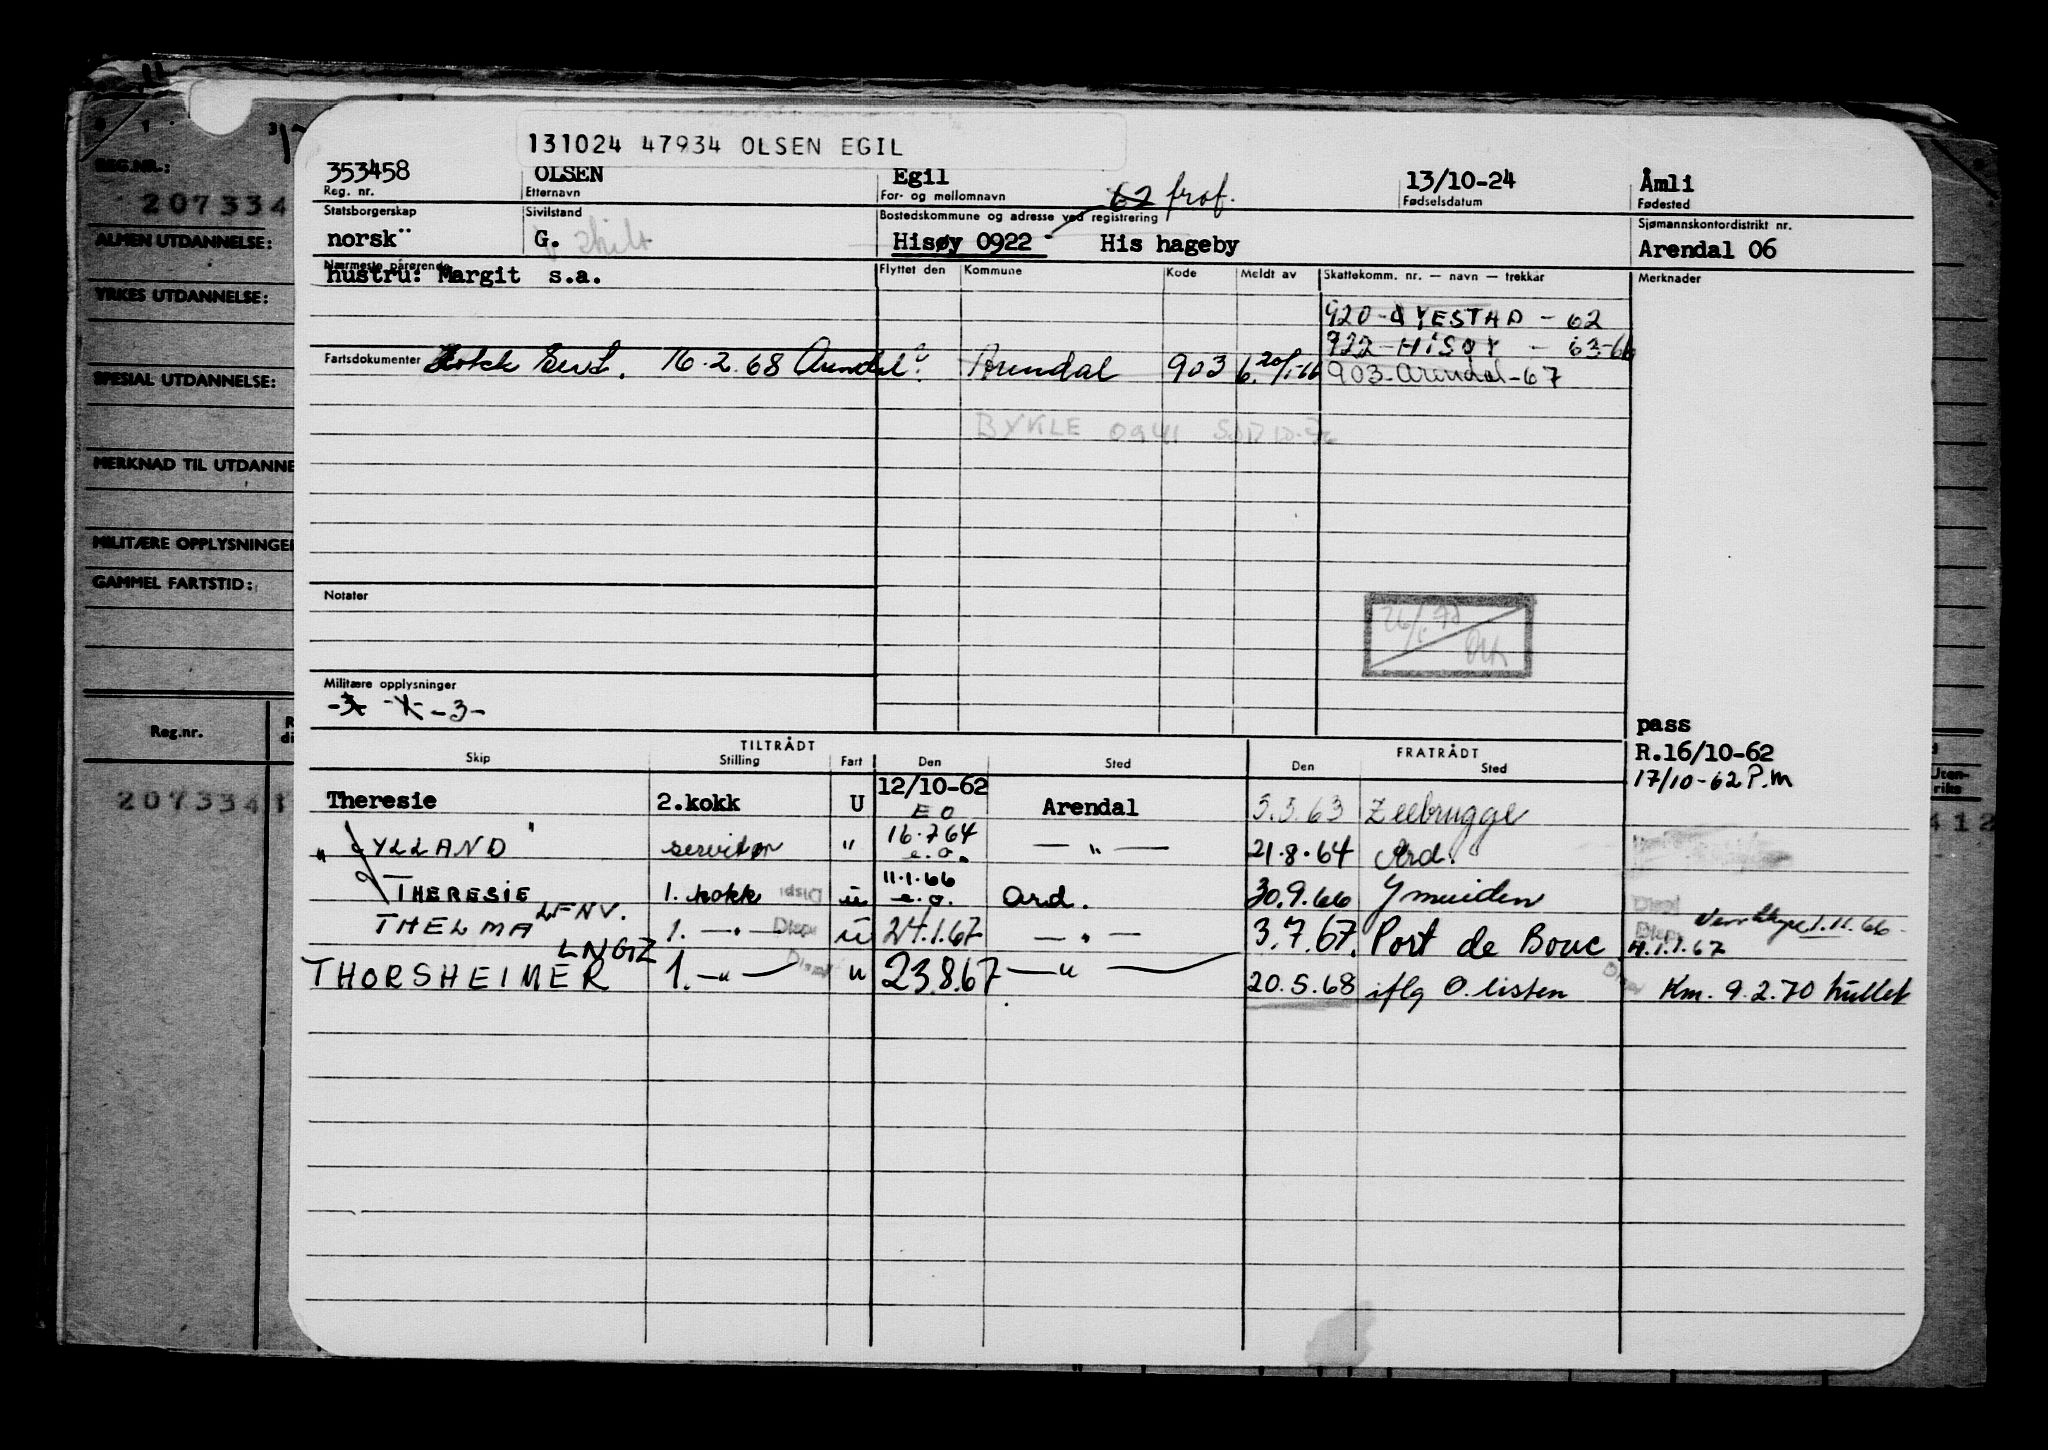 131024 47934 OLSEN EGIL
353458 OLSEN Egil 13/10-24 Åmli
Reg. nr. Etternavn For- og mellomnavn Fødselsdatum Fødested
62 frof.
Statsborgerskap Sivilstand Bostedskommune og adresse ved registrering Sjømannskontordistrikt nr.
norsk G. skilt Hisøy 0922 His hageby Arendal 06
Nærmeste pårørende Flyttet den Kommune Kode Meldt av Skattekomm. nr. — navn — trekkår Merknader
hustru: Margit s.a.
920 - ØYESTAD - 62
922 - HISØY - 63-66
Fartsdokumenter Kokk Sert. 16.2.68 Arendal Arendal 903 903 - Arendal - 67
BYKLE 0941
Notater
Militære opplysninger
-3-
pass
R.16/10-62
17/10-62 P.M
TILTRÅDT FRATRÅDT
Skip Stilling Fart Den Sted Den Sted
Theresie 2.kokk U 12/10-62 Arendal 5.5.63 Zeebrugge
E O
" JYLLAND " servitør " 16.7.64 — " — 21.8.64 Ard.
e.o.
THERESIE 1. kokk Dispi u 11.1.66 Ard. 30.9.66 Ymuiden
e.o.
THELMA LFNV. 1. — " — Disps u 24.1.67 — " — 3.7.67. Port de Bouc
1.11.66
4.1.1.67
THORSHEIMER LNGZ 1. — " — " 23.8.67 — " — 20.5.68 iflg O.listen Km. 9.2.70 hullet
REG.NR.:
207334
ALMEN UTDANNELSE:
YRKES UTDANNELSE:
SPESIAL UTDANNELSE:
MERKNAD TIL UTDANNE
MILITÆRE OPPLYSNINGER
GAMMEL FARTSTID:
Reg.nr.
207334
Uten-
riks
412